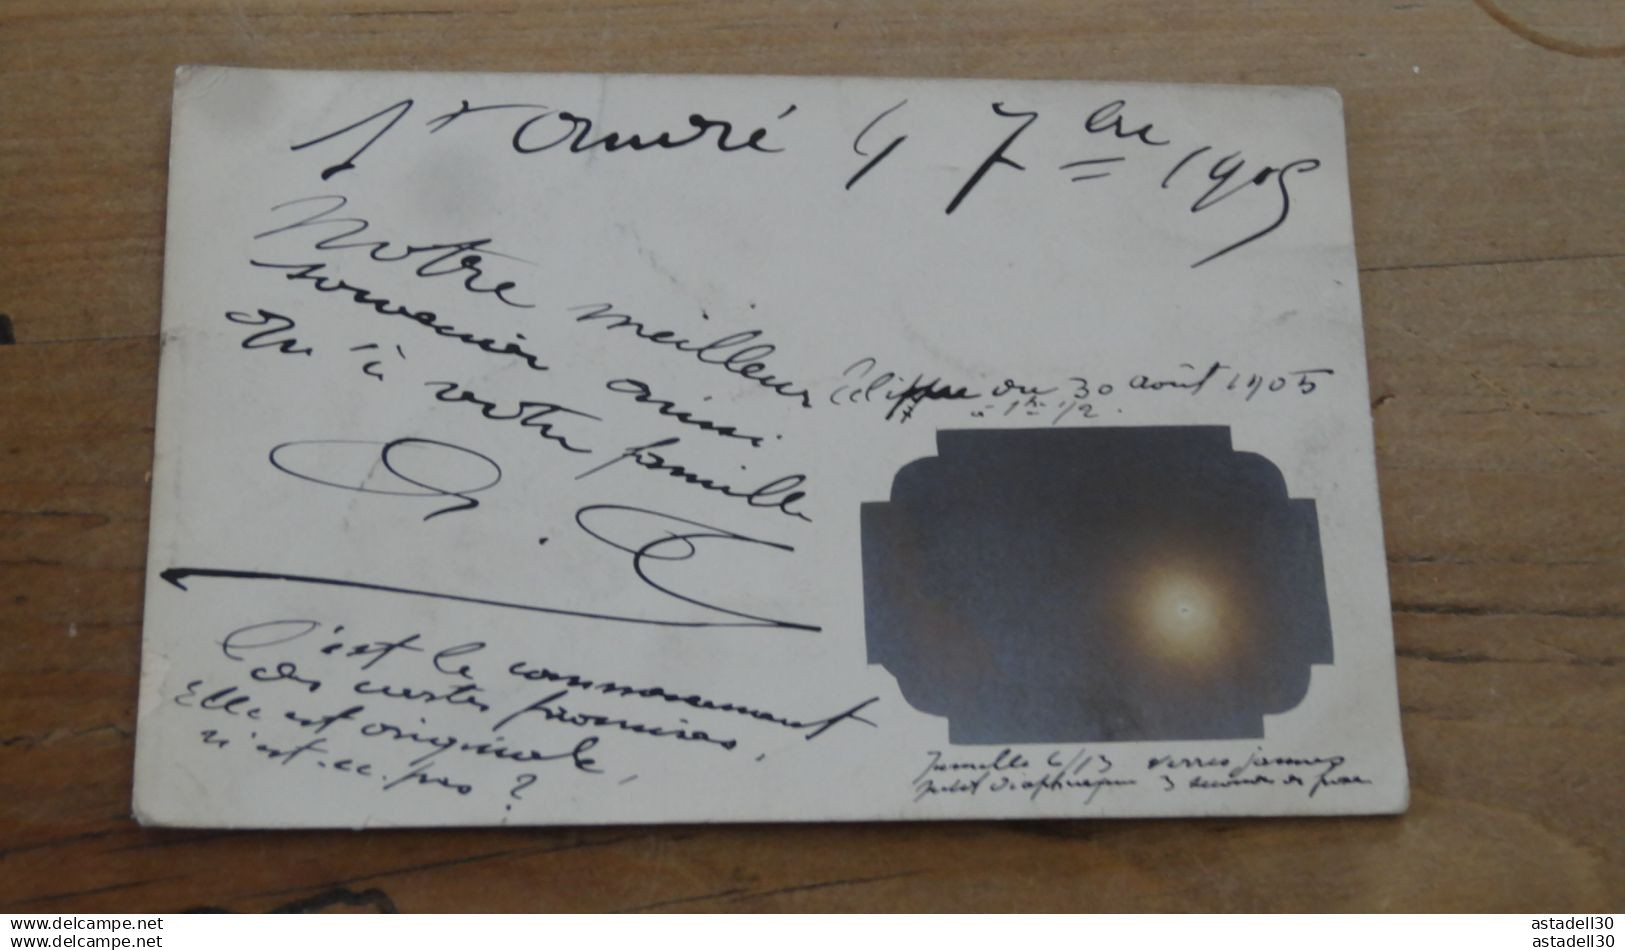 4 7bre 1905
Notre meilleur
souvenir ainsi
qu'à votre famille
Eclipse du 30 août 1905
à 1h 1/2.
C'est le commencement
des cartes promises,
Elle est originale,
n'est-ce-pas ?
Jumelle 6/13 verres jaunes
petit diaphragme 3 secondes de pose
www.delcampe.net
www.delcampe.net
astadell30
astadell30